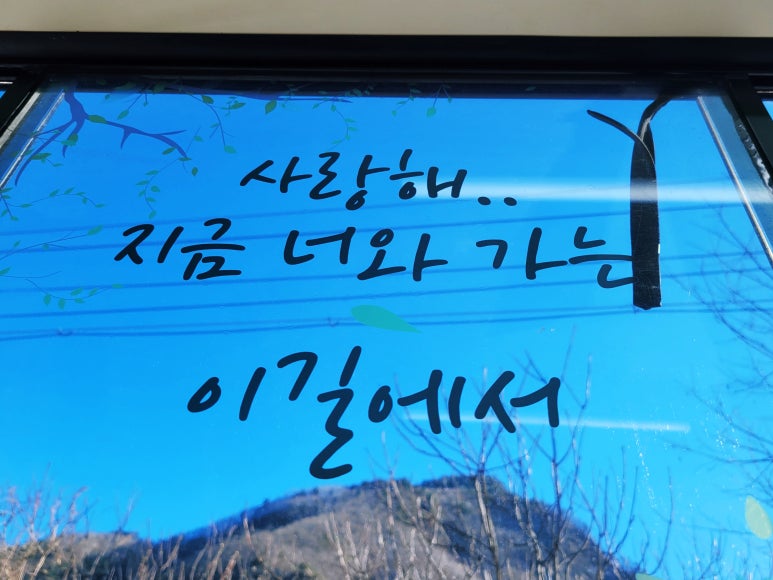 사랑해..
지금 너와 가는
이길에서